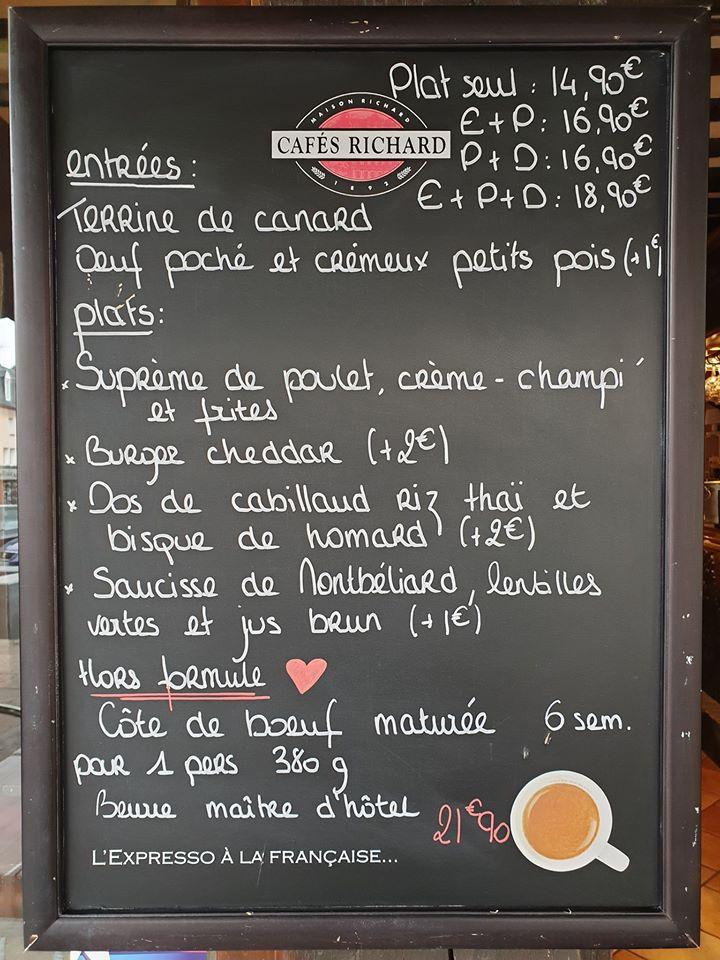 Plat seul : 14,90€
E + P : 16,90€
P + D : 16,90€
E + P + D : 18,90€
MAISON RICHARD
CAFÉS RICHARD
1892
entrées :
Terrine de canard
Oeuf poché et crémeux petits pois (+1€
plats :
x Suprème de poulet, crème - champi
et frites
x Burger cheddar (+2€)
x Dos de cabillaud riz thaï et
bisque de homard (+2€)
x Saucisse de Montbéliard, lentilles
vertes et jus brun (+1€)
Hors formule
Côte de boeuf maturée 6 sem.
pour 1 pers 380 g
Beurre maître d'hôtel 21€90
L'EXPRESSO À LA FRANÇAISE...